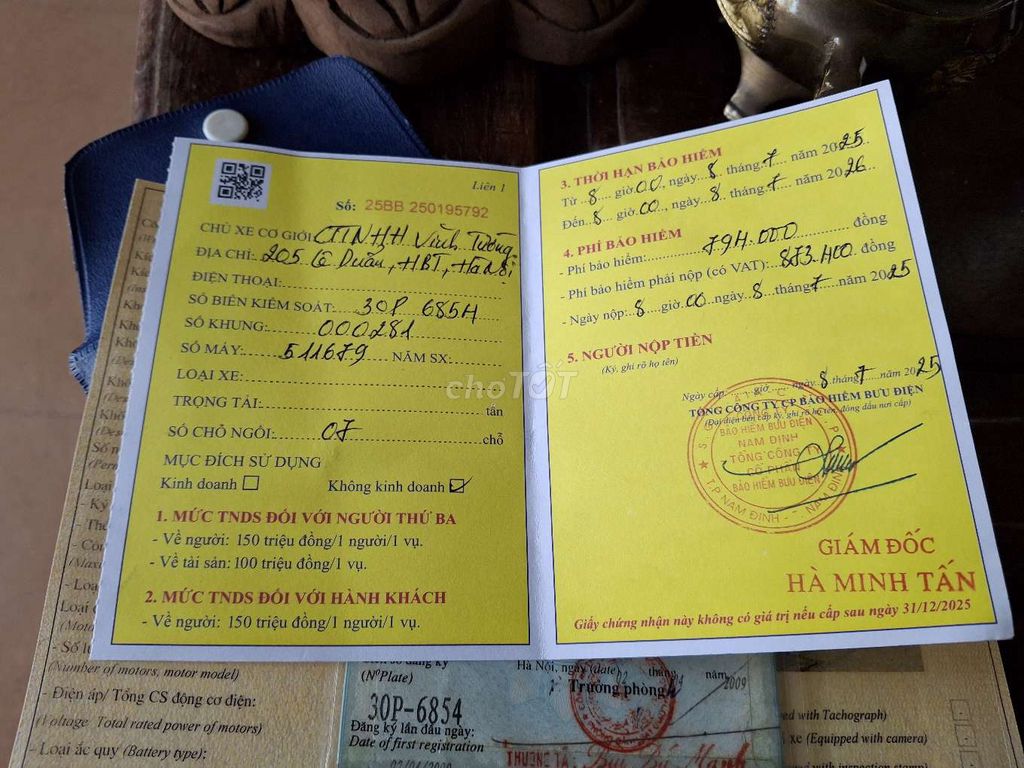 Liên 1
Số: 25BB 250195792
CHỦ XE CƠ GIỚI: CTTNHH Vĩnh Tường
ĐỊA CHỈ: 205 Lê Duẩn, HBT, Hà Nội
ĐIỆN THOẠI:
SỐ BIỂN KIỂM SOÁT: 30P 6854
SỐ KHUNG: 000281
SỐ MÁY: 511679 NĂM SX:
LOẠI XE:
TRỌNG TẢI: tấn
SỐ CHỖ NGỒI: 07 chỗ
MỤC ĐÍCH SỬ DỤNG
Kinh doanh ☐ Không kinh doanh ☑
1. MỨC TNDS ĐỐI VỚI NGƯỜI THỨ BA
- Về người: 150 triệu đồng/1 người/1 vụ.
- Về tài sản: 100 triệu đồng/1 vụ.
2. MỨC TNDS ĐỐI VỚI HÀNH KHÁCH
- Về người: 150 triệu đồng/1 người/1 vụ.
3. THỜI HẠN BẢO HIỂM
Từ 8 giờ 00, ngày 8 tháng 7 năm 2025
Đến 8 giờ 00, ngày 8 tháng 7 năm 2026
4. PHÍ BẢO HIỂM
- Phí bảo hiểm: 794.000 đồng
- Phí bảo hiểm phải nộp (có VAT): 873.400 đồng
- Ngày nộp: 8 giờ 00 ngày 8 tháng 7 năm 2025
5. NGƯỜI NỘP TIỀN
(Ký, ghi rõ họ tên)
Ngày cấp: giờ , ngày 8 tháng 7 năm 2025
TỔNG CÔNG TY CP BẢO HIỂM BƯU ĐIỆN
(Đại diện bên cấp ký, ghi rõ họ tên, đóng dấu nơi cấp)
BẢO HIỂM BƯU ĐIỆN
NAM ĐỊNH
TỔNG CÔNG TY
CỔ PHẦN
BẢO HIỂM BƯU ĐIỆN
T.P NAM ĐỊNH - NAM ĐỊNH
GIÁM ĐỐC
HÀ MINH TẤN
Giấy chứng nhận này không có giá trị nếu cấp sau ngày 31/12/2025
choTỐT
(Number of motors, motor model)
- Điện áp/ Tổng CS động cơ điện:
(Voltage Total rated power of motors)
- Loại ắc quy (Battery type):
(NºPlate)
30P-6854
Đăng ký lần đầu ngày:
Date of first registration
Hà Nội, ngày (date) 02 tháng năm 2009
Trưởng phòng
THƯỢNG TÁ
with Tachograph)
xe (Equipped with camera)